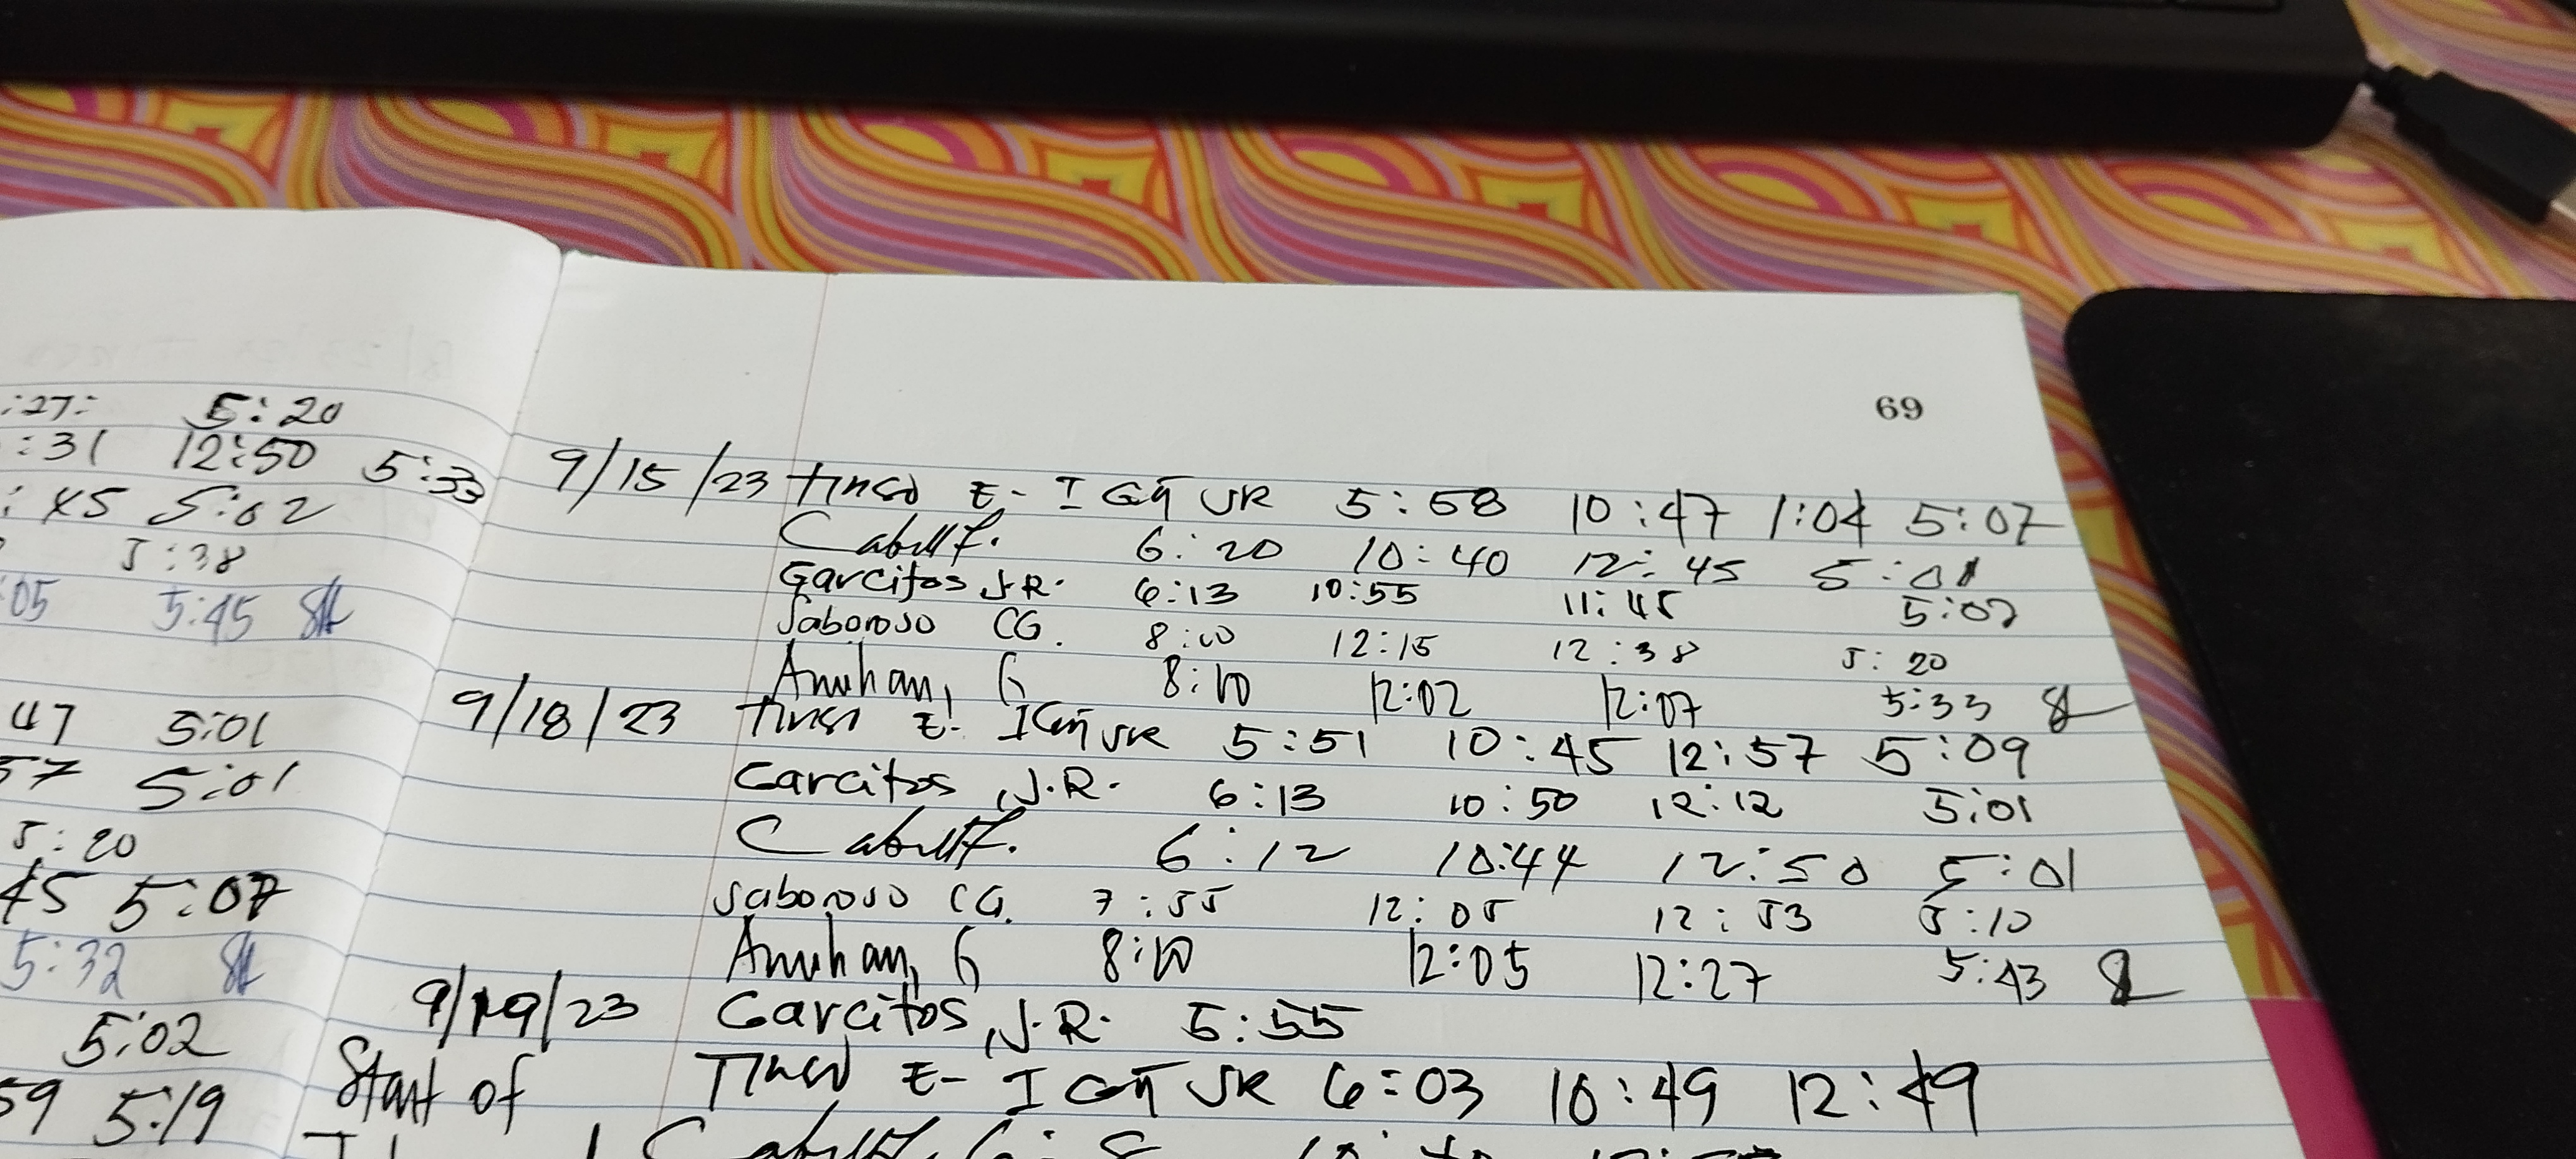 :27: 5:20
:31 12:50 5:33
:45 5:02
5:38
:05 5:45
47 5:01
57 5:01
5:20
45 5:07
5:32
5:02
59 5:19
69
9/15/23 Tinso E- 5:58 10:47 1:04 5:07
6:20 10:40 12:45 5:01
Garcitos J.R. 6:13 10:55 11:45 5:07
Saboroso CG. 8:00 12:15 12:38 5:20
Anuhan, G 8:10 12:02 12:07 5:33
9/18/23 Tinso E- 5:51 10:45 12:57 5:09
Garcitos, J.R. 6:13 10:50 12:12 5:01
6:12 10:44 12:50 5:01
Saboroso CG. 7:55 12:05 12:53 5:10
Anuhan, G 8:10 12:05 12:27 5:43
9/19/23 Garcitos, J.R. 5:55
Start of Tinso E- 6:03 10:49 12:49